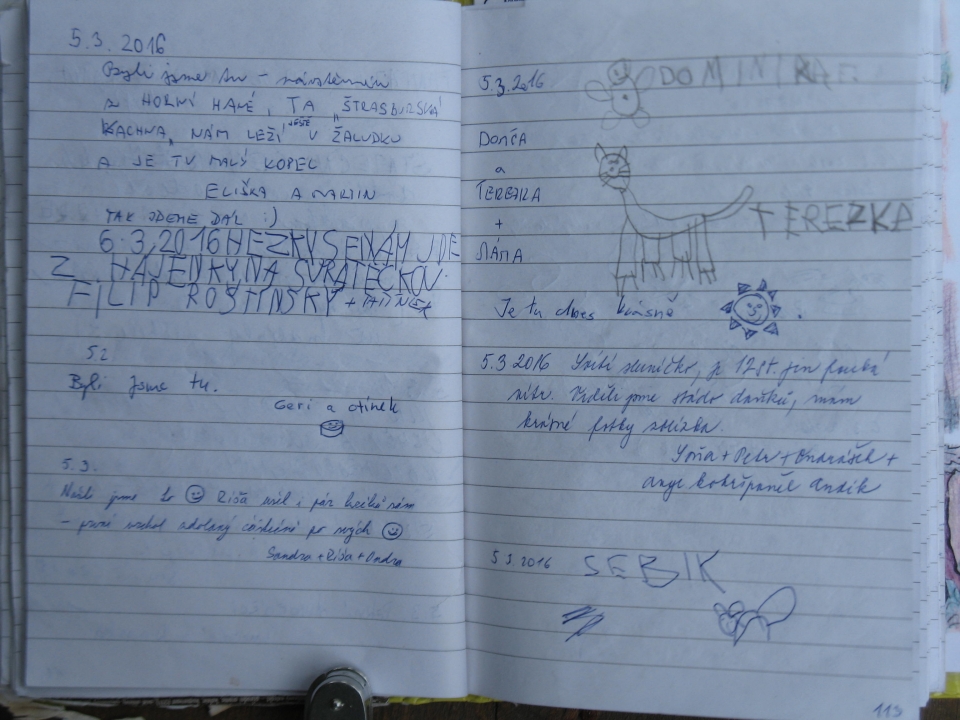 5.3. 2016
Byli jsme tu –
Z HORNÍ HANÉ, TA ŠTRASBURSKÁ
KACHNA, NÁM LEŽÍ JEŠTĚ V ŽALUDKU
A JE TU MALÝ KOPEC
ELIŠKA A MARTIN
TAK JDEME DÁL :)
6.3,2016 HEZKY SE NÁM JDE
Z HÁJENKY NA
FILIP ROŠTÍNSKÝ +
5.3.
Byli jsme tu.
Geri a
5.3.
Našli jsme to Ríša měl i pár
– první vrchol zdolaný po svých
Sandra + Ríša + Ondra
5.3.2016
DOMINIKA
DOMČA
a
TEREZKA
+
MÁMA
TEREZKA
Je tu dnes krásně
5.3 2016 Svítí sluníčko, je 12 st. jen fouká
vítr. Viděli jsme stádo daňků, mám
krásné fotky zblízka.
+ Petr + Ondrášek +
5.3.2016 SEBIK
113